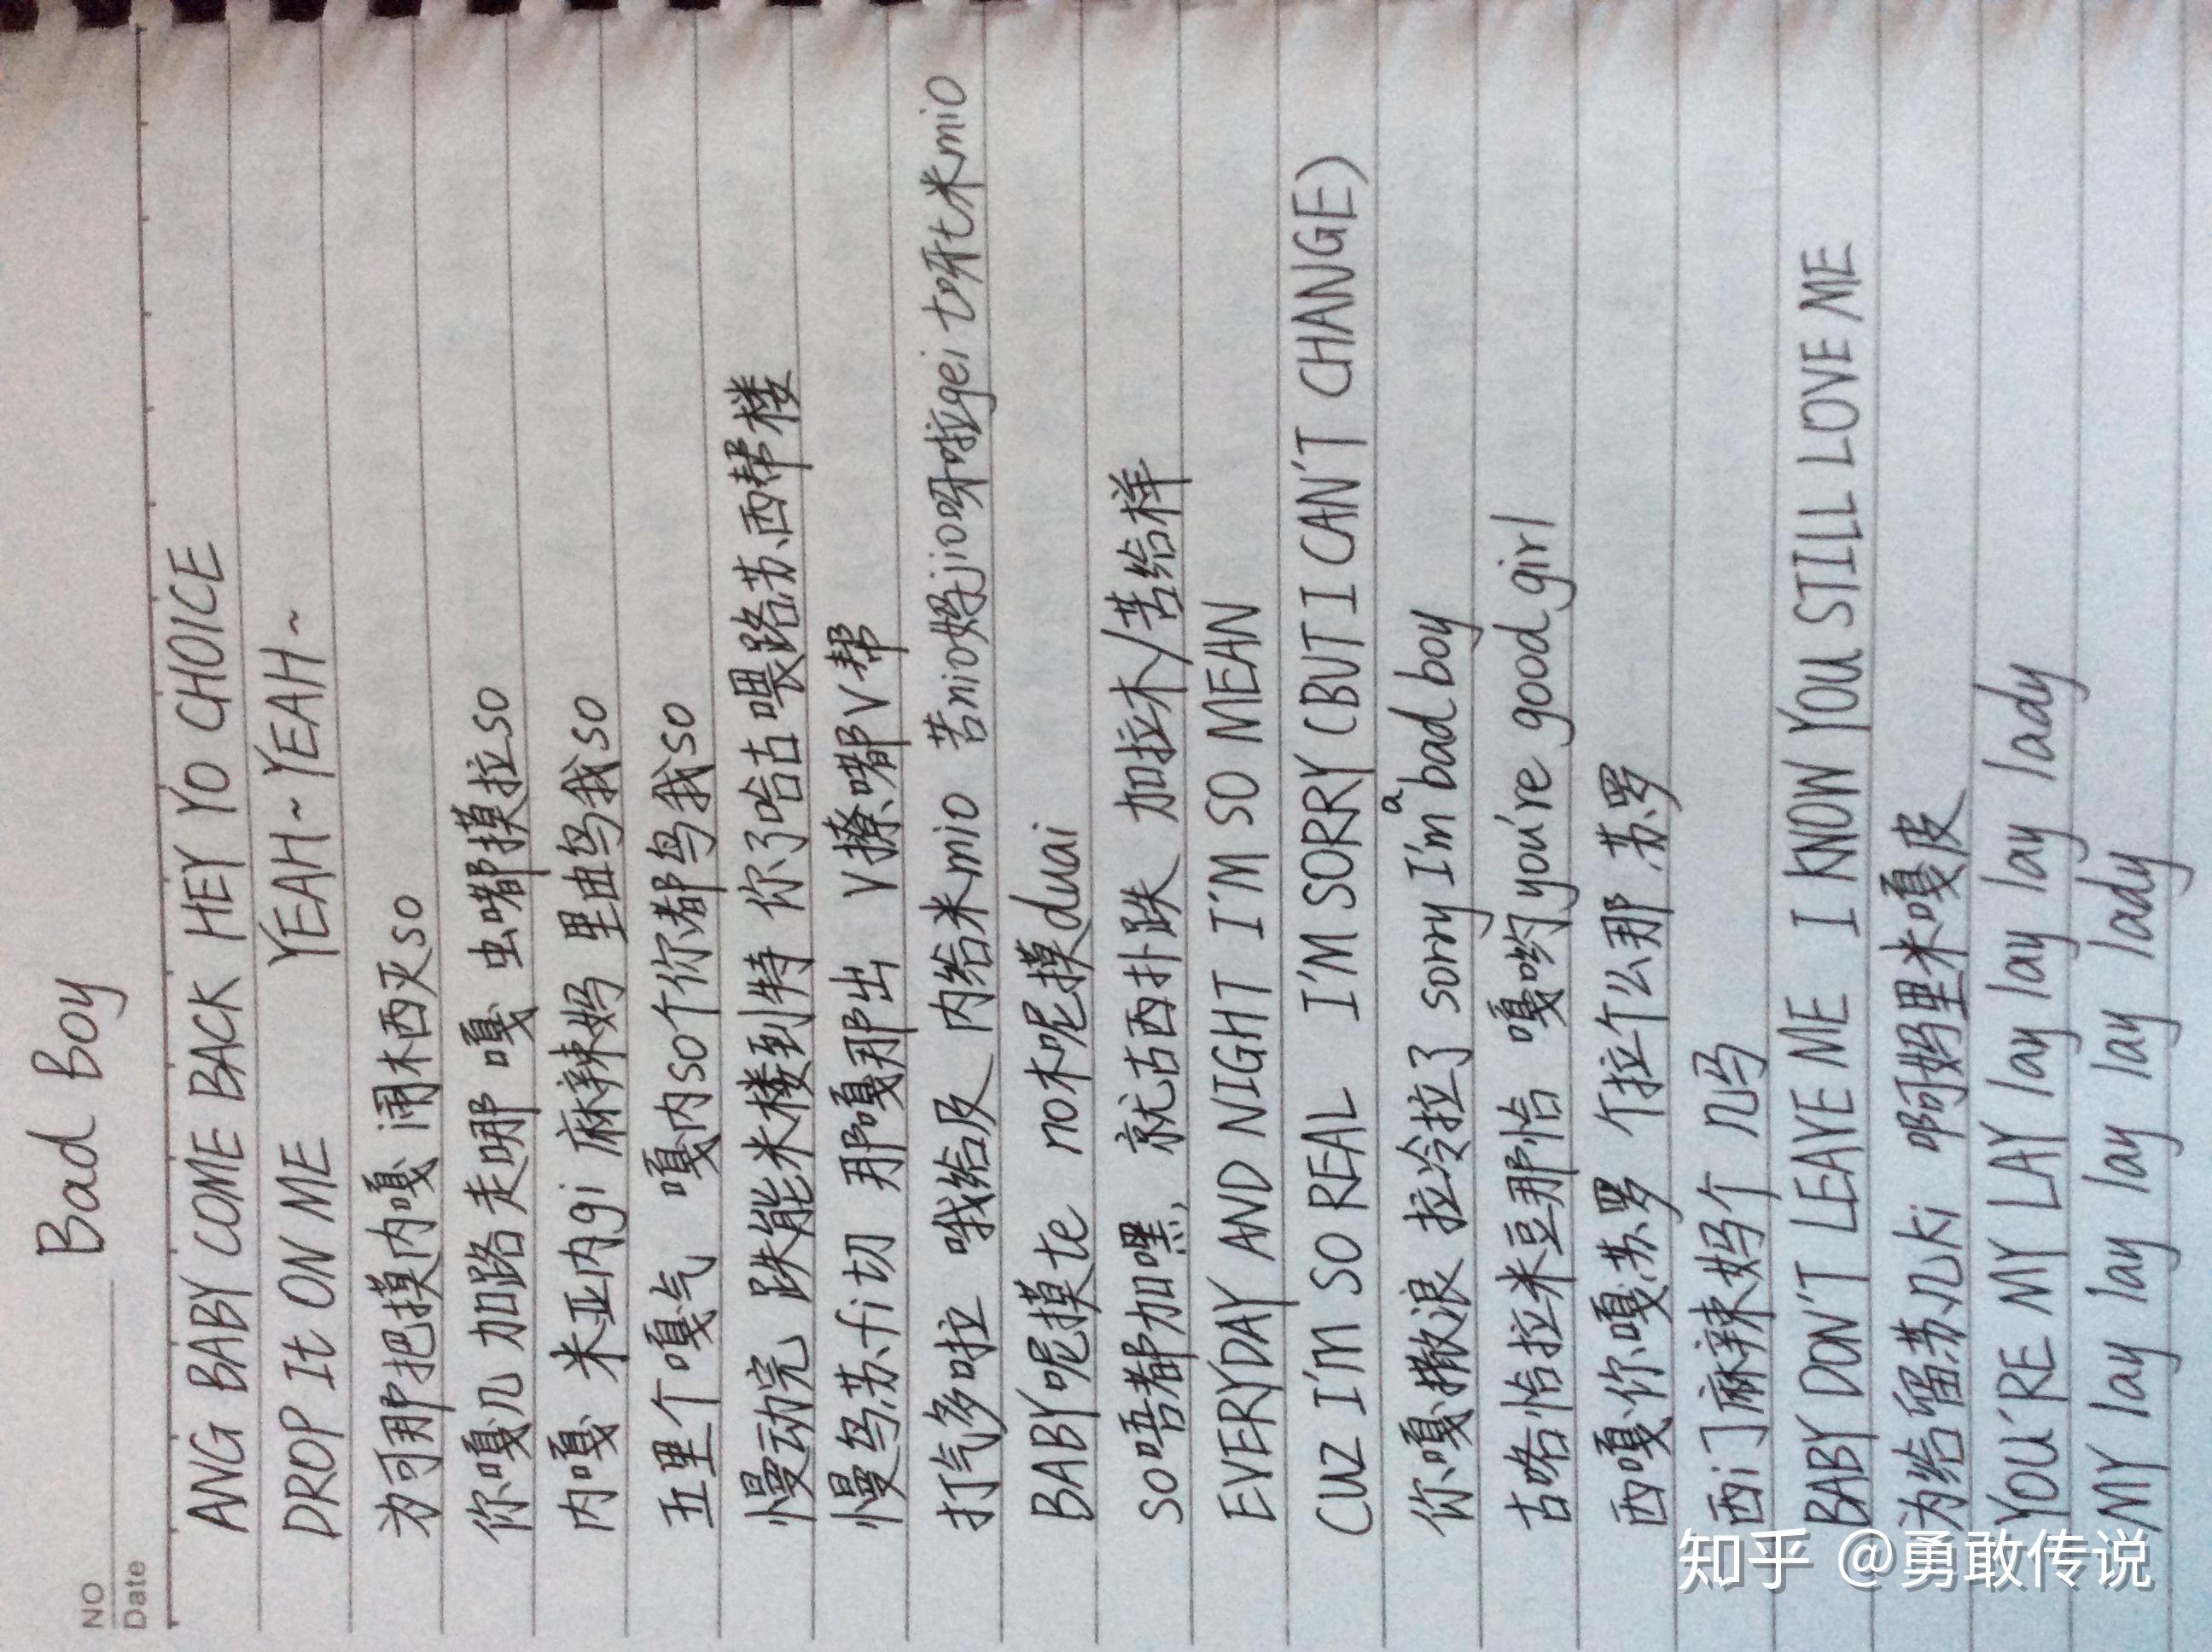 Bad Boy
NO
Date
ANG BABY COME BACK HEY YO CHOICE
DROP It ON ME YEAH~YEAH~
为可那把摸内嘎 闹木西灭so
你嘎几 加路走哪 嘎 虫嘟摸拉so
内嘎 米亚内gi 麻辣妈 里曲鸟我so
五里个嘎气 嘎内so个你都鸟我so
慢动完 跌能米楼到特 你了哈古喂路苏西帮楼
慢鸟苏fi切 那嘎那出 V撩嘟V帮
打气多啦 哦给及 内给米mio 苦nio妈jio呀啦gei to呀t米mio
BABY呢摸te no木呢摸duai
so唔都加嘿, 就古西扑跌 加拉木/苦给样
EVERYDAY AND NIGHT I'M SO MEAN
CUZ I'M SO REAL I'M SORRY (BUT I CAN'T CHANGE)
你嘎撒浪 拉冷拉了 sorry I'm a bad boy
古咯恰拉米豆那恰 嘎哟 you're good girl
西嘎你嘎苏罗 个拉个么那 苏罗
西i门麻辣妈个 几马
BABY DON'T LEAVE ME I KNOW YOU STILL LOVE ME
为给留苏几ki 啊妈里米嘎皮
YOU'RE MY LAY lay lay lay lay lady
MY lay lay lay lay lady
知乎 @勇敢传说